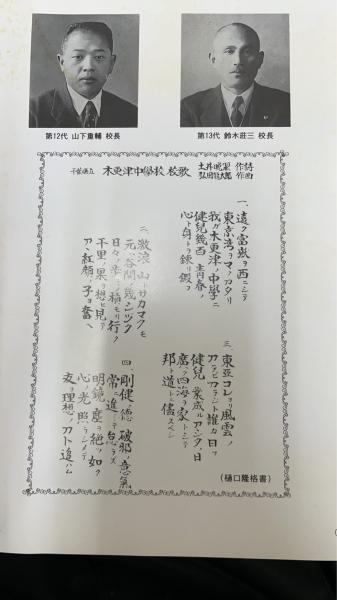 第12代 山下重輔 校長
第13代 鈴木荘三 校長
千葉縣立 木更津中學校 校歌
土井晩翠 作詩
弘田龍太郎 作曲
一、遠ク富嶽ヲ西ニシテ
東京湾ヲマノアタリ
我ガ木更津ノ中學ニ
健兒幾百 青春ノ
心ト身トヲ錬リ鍛フ
二、激浪 山トサカマクモ
元ハ谷間ノ幾シヅク
日々ノ 積モリ行ク
千里ノ 果ヲ想ヒ見テ
アヽ紅顔ノ子ヨ奮ヘ
三、東亞コレヨリ風雲ノ
誰カ曰フ
健兒ノ業成ルアシタ、日
廣ク四海ヲ家トシテ
邦ト道トニ儘スベシ
四、剛健ノ徳 破邪ノ意氣
常ニ進ミテ怠ラズ
明鏡 塵ヲ絶ツ如ク
心ノ光 照ラシメテ
理想ノアト追ハム
(樋口隆格書)